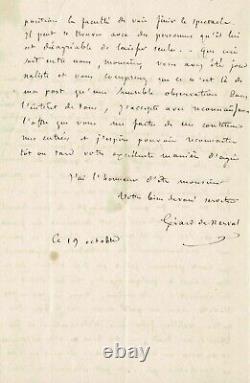 position la faculté de voir finir le spectacle.
Il peut se trouver avec des personnes qu'il lui
est désagréable de laisser seules. — Que ceci
soit entre nous, monsieur, vous avez été jour
naliste et vous comprenez que ce n'est là de
ma part qu'une humble observation. Dans
l'intérêt de tous, j'accepte avec reconnaissance
l'offre que vous me faites de me continuer
mes entrées et j'espère pouvoir reconnaître
tôt ou tard votre excellente manière d'agir
J'ai l'honneur d'être monsieur
Votre bien dévoué serviteur
Gérard de Nerval
Ce 19 octobre
© 123